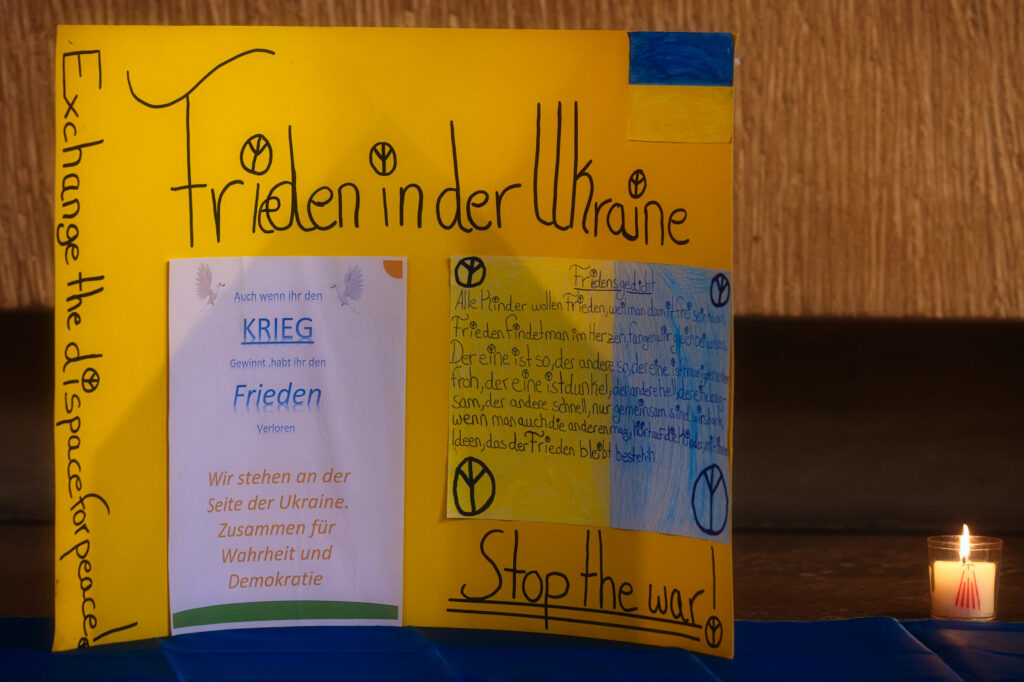 Exchange the dispace for peace!
Frieden in der Ukraine
Auch wenn ihr den
KRIEG
Gewinnt ,habt ihr den
Frieden
Verloren
Wir stehen an der
Seite der Ukraine.
Zusammen für
Wahrheit und
Demokratie
Friedensgedicht
Alle Kinder wollen Frieden, weil man damit frei sein kann,
Frieden findet man im Herzen, fangen wir gleich
Der eine ist so, der andere so, der eine ist
froh, der eine ist dunkel, der andere hell, der eine lang-
sam, der andere schnell, nur gemeinsam sind wir stark,
wenn man auch die anderen mag, hört auf die Kinder, mit ihren
Ideen, das der Frieden bleibt bestehn.
Stop the war!